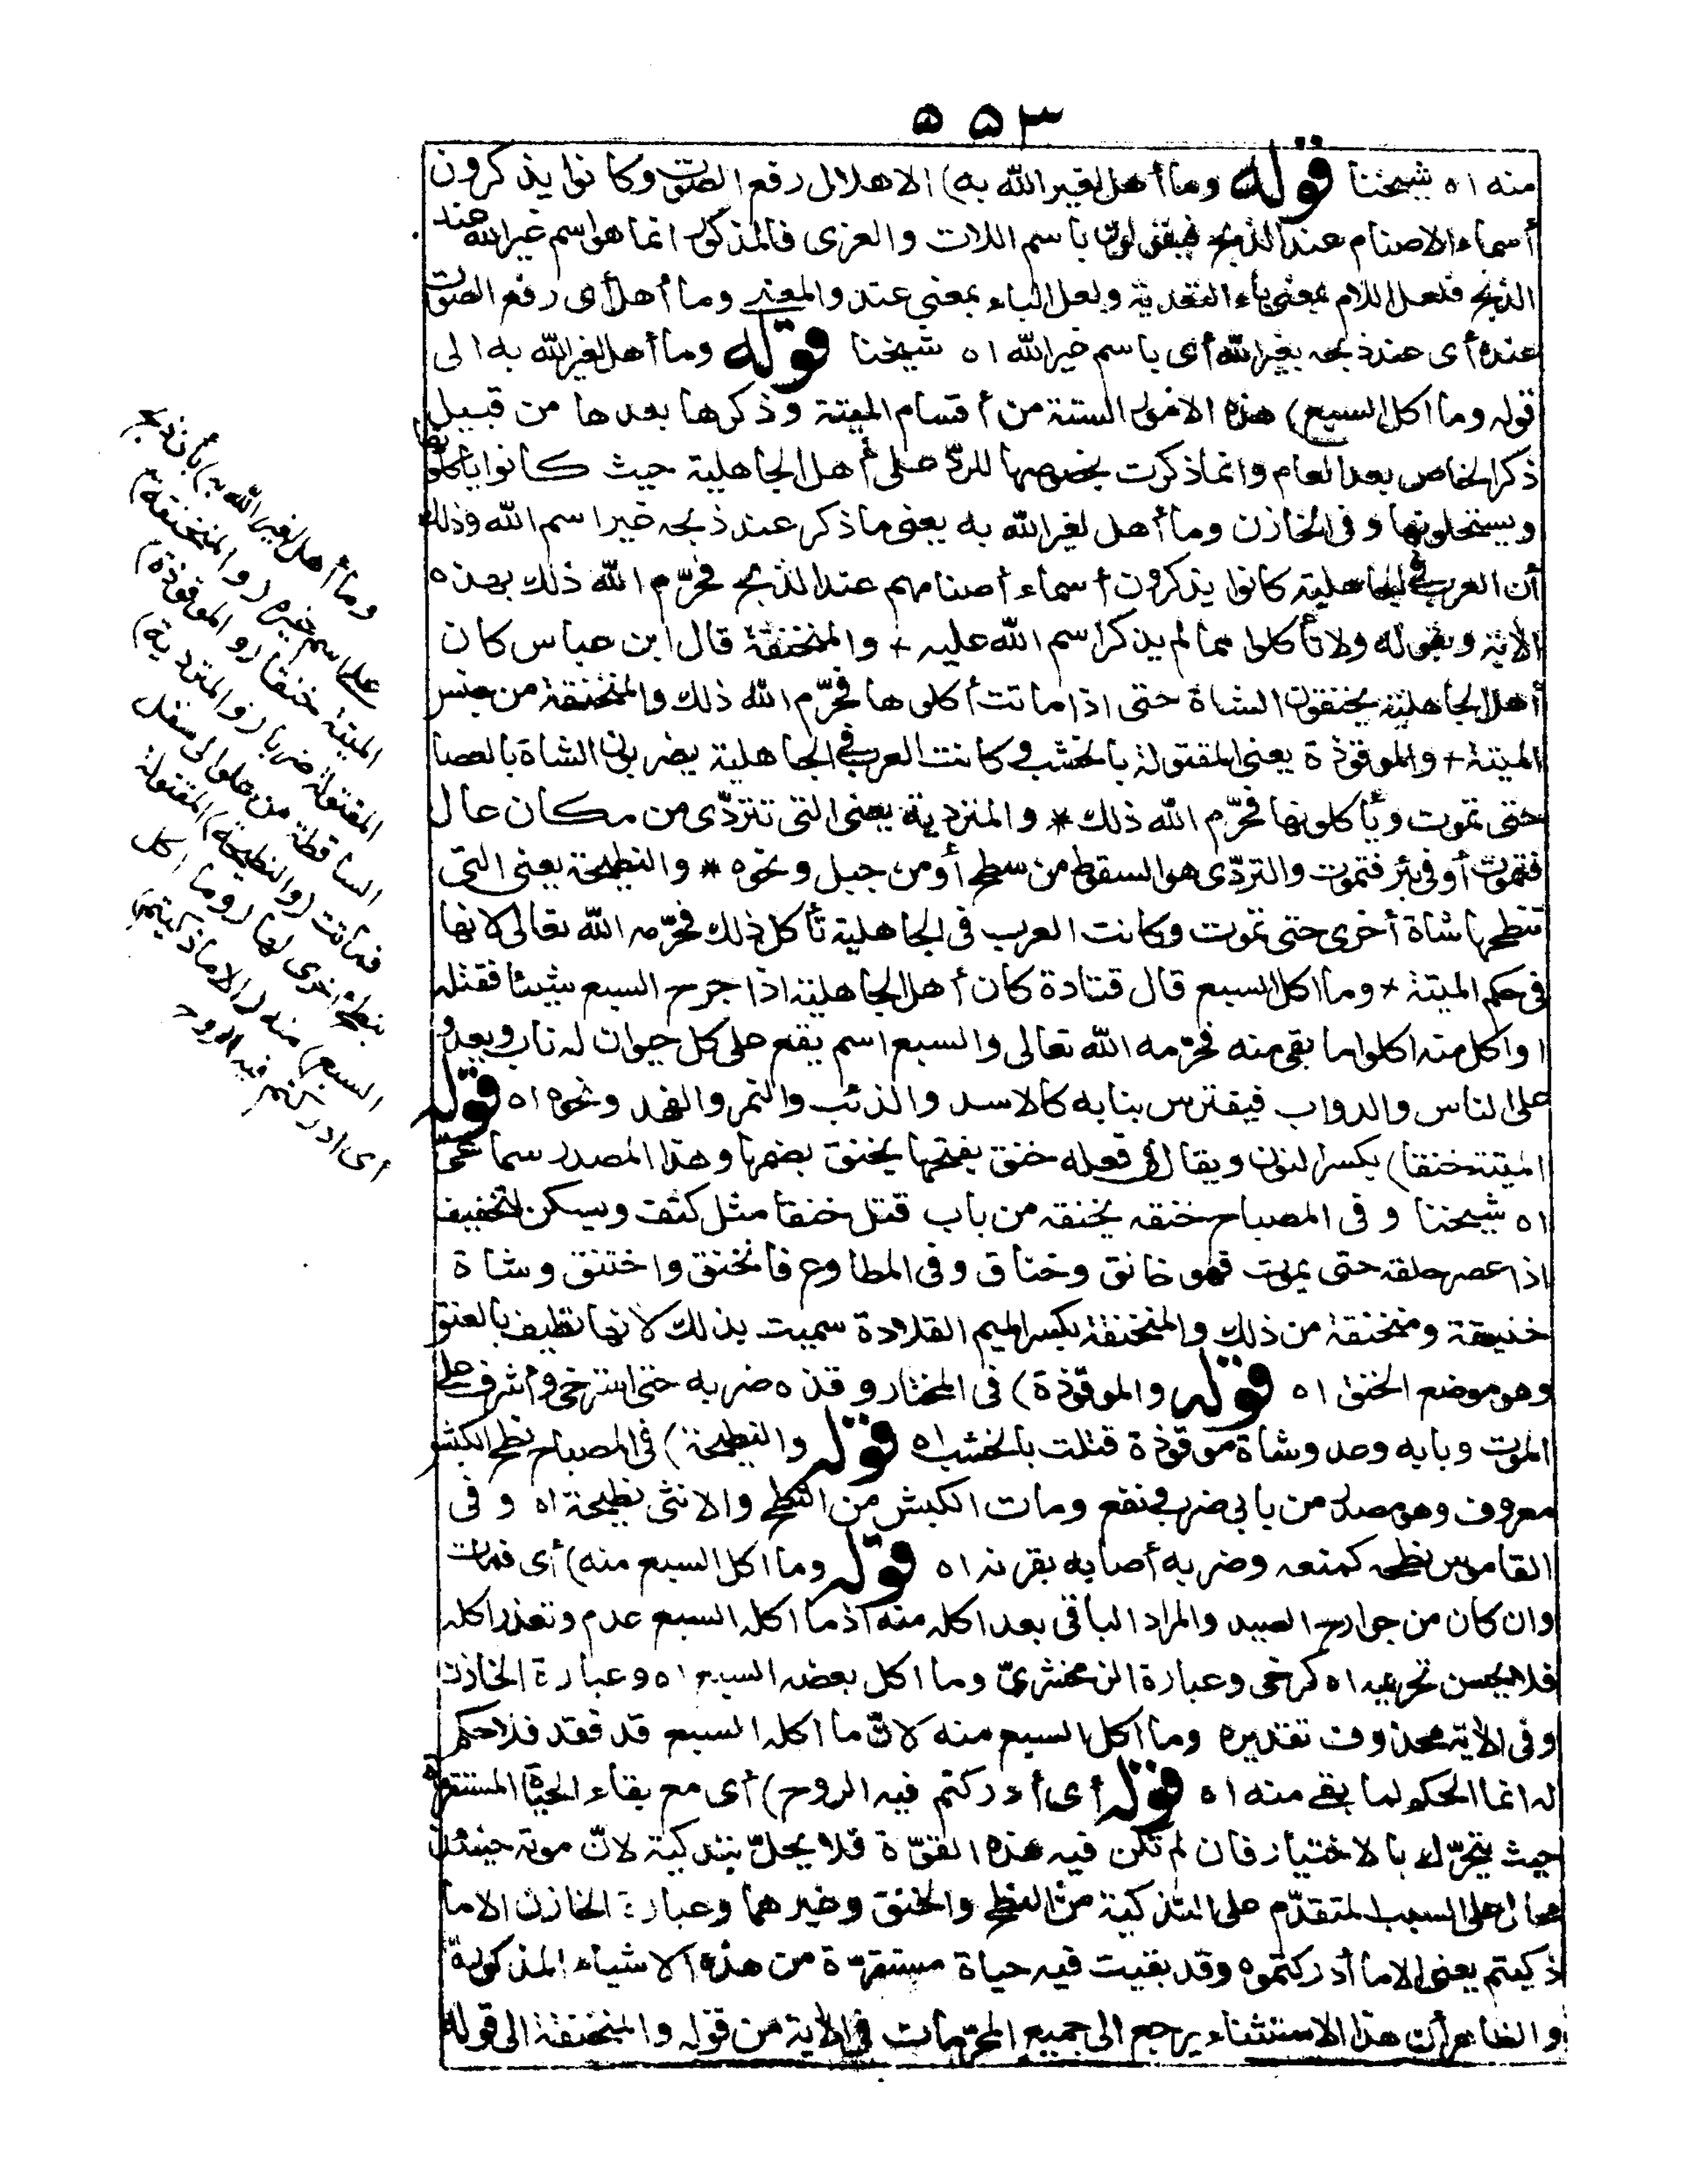 ٥٥٣
منه اه شيخنا قوله وما أهل لغير الله به) الاهلال رفع الصوت وكانوا يذكرون
أسماء الاصنام عند الذبح فيقولون باسم اللات والعزى فالمذكور انما هو اسم غير الله عند
الذبح فلعل اللام بمعنى باء التعدية ولعل الباء بمعنى عند والمعنى وما أهل أى رفع الصوت
عنده أى عند ذبحه بغير الله أى باسم غير الله اه شيخنا قوله وما أهل لغير الله به الى
قوله وما اكل السبع) هذه الامور الستة من أقسام الميتة وذكرها بعدها من قبيل
ذكر الخاص بعد العام وانما ذكرت بخصوصها للردّ على أهل الجاهلية حيث كانوا يأكلونها
ويستحلونها وفى الخازن وما أهل لغير الله به يعنى ما ذكر عند ذبحه غير اسم الله وذلك
أن العرب فى الجاهلية كانوا يذكرون أسماء أصنامهم عند الذبح فحرّم الله ذلك بهذه
الاية وبقوله ولا تأكلوا مما لم يذكر اسم الله عليه + والمنخنقة قال ابن عباس كان
أهل الجاهلية يخنقون الشاة حتى اذا ماتت أكلوها فحرّم الله ذلك والمنخنقة من جنس
الميتة + والموقوذة يعنى المقتولة بالخشب وكانت العرب فى الجاهلية يضربون الشاة بالعصا
حتى تموت ويأكلونها فحرّم الله ذلك * والمتردية يعنى التى تتردّى من مكان عال
فتموت أو فى بئر فتموت والتردّى هو السقوط من سطح أو من جبل ونحوه * والنطيحة يعنى التى
تنطحها شاة أخرى حتى تموت وكانت العرب فى الجاهلية تأكل ذلك فحرّمه الله تعالى لانها
فى حكم الميتة + وما اكل السبع قال قتادة كان أهل الجاهلية اذا جرح السبع شيئا فقتله
او اكل منه اكلوا ما بقى منه فحرّمه الله تعالى والسبع اسم يقع على كل حيوان له ناب ويعدو
على الناس والدواب فيفترس بنابه كالاسد والذئب والنمر والفهد ونحوه اه قوله
الميتة خنقا) بكسر النون ويقال فى فعله خنق بفتحها يخنق بضمها وهذا المصدر سماعىّ
اه شيخنا وفى المصباح خنقه يخنقه من باب قتل خنقا مثل كتف ويسكن للتخفيف
اذا عصر حلقه حتى يموت فهو خانق وخناق وفى المطاوع فانخنق واختنق وشاة
خنيقة ومنخنقة من ذلك والمخنقة بكسر الميم القلادة سميت بذلك لانها تطيف بالعنق
وهو موضع الخنق اه قوله والموقوذة) فى المختار وقذه ضربه حتى استرخى وأشرف على
الموت وبابه وعد وشاة موقوذة قتلت بالخشب اه قوله والنطيحة) فى المصباح نطح الكبش
معروف وهو مصدر من بابى ضرب ونفع ومات الكبش من النطح والانثى نطيحة اه وفى
القاموس نطحه كمنعه وضربه أصابه بقرنه اه قوله وما اكل السبع منه) أى فمات
وان كان من جوارح الصيد والمراد الباقى بعد اكله منه اذ ما اكله السبع عدم وتعذر اكله
فلا يحسن تحريمه اه كرخى وعبارة الزمخشرىّ وما اكل بعضه السبع اه وعبارة الخازن
وفى الاية محذوف تقديره وما اكل السبع منه لانّ ما اكله السبع قد فقد فلا حكم
له انما الحكم لما بقى منه اه قوله أى أدركتم فيه الروح) أى مع بقاء الحياة المستقرة
حيث يتحرّك بالاختيار فان لم تكن فيه هذه القوّة فلا يحلّ بتذكيته لانّ موته حينئذ
محال على السبب المتقدّم على التذكية من النطح والخنق وغيرهما وعبارة الخازن الا ما
ذكيتم يعنى الا ما أدركتموه وقد بقيت فيه حياة مستقرّة من هذه الاشياء المذكورة
والظاهر أن هذا الاستثناء يرجع الى جميع المحرّمات فى الاية من قوله والمنخنقة الى قوله
وما أهل لغير الله به) بأن ذبح
على اسم غيره (والمنخنقة)
الميتة خنقا (والموقوذة)
المقتولة ضربا (والمتردية)
الساقطة من علو الى سفل
فماتت (والنطيحة) المقتولة
بنطح أخرى لها (وما اكل
السبع) منه (الا ما ذكيتم)
أى ادركتم فيه الروح